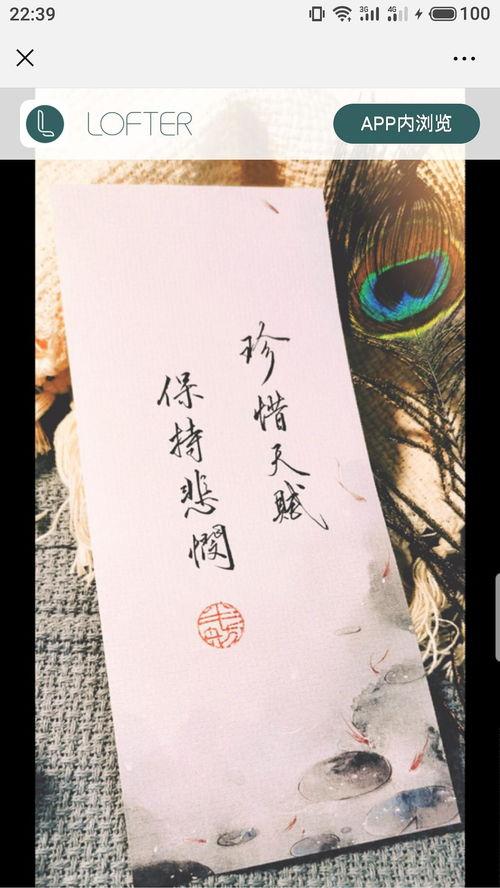 22:39
3G
4G
100
LOFTER
APP内浏览
珍惜天赋
保持悲憫